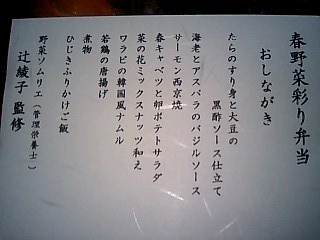 春野菜彩り弁当
おしながき
たらのすり身と大豆の
黒酢ソース仕立て
海老とアスパラのバジルソース
サーモン西京焼
春キャベツと卵ポテトサラダ
菜の花ミックスナッツ和え
ワラビの韓国風ナムル
若鶏の唐揚げ
煮物
ひじきふりかけご飯
野菜ソムリエ(管理栄養士)
辻綾子 監修